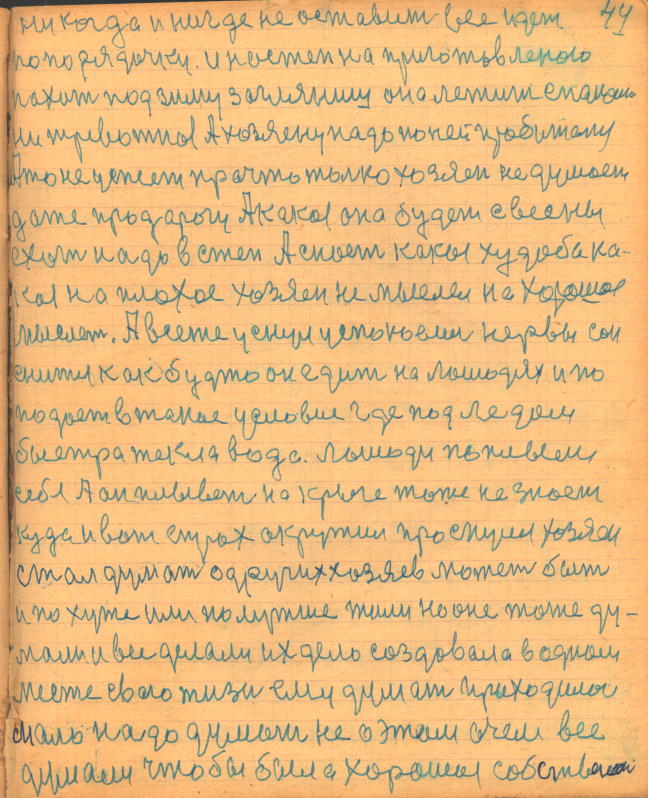 44
никогда и нигде не оставит все идет
по порядочку. и ностеп на приготовленою
пахот под зиму загляниш она лежит спакой-
ни тревожно А хозяену надо по ней
Ато не успеет прачто толко хозяен не думоет
даже продарогу Акакая она будет свесны
ехат надо встеп Аскот какая худоба ка-
кая на плохое хозяен не мыслел на хорошое
мыслет. А всеже уснул успокоели нервы сон
снитя как будто он едит на лошодях и по
подает в такое условие где под ледом
быстра текла вода. лошоди поплыли
себя Аон плывет на крыге тоже не знает
куда и вот страх окружил проснулся хозяен
стал думат о других хозяев может быт
и по хуже или по лутше жили но оне тоже ду-
мали и все делали их дело создовала водном
месте свою жизн ему думат приходилос
мало надо думат не о этом очем все
думали чтобы была хорошоя собствености